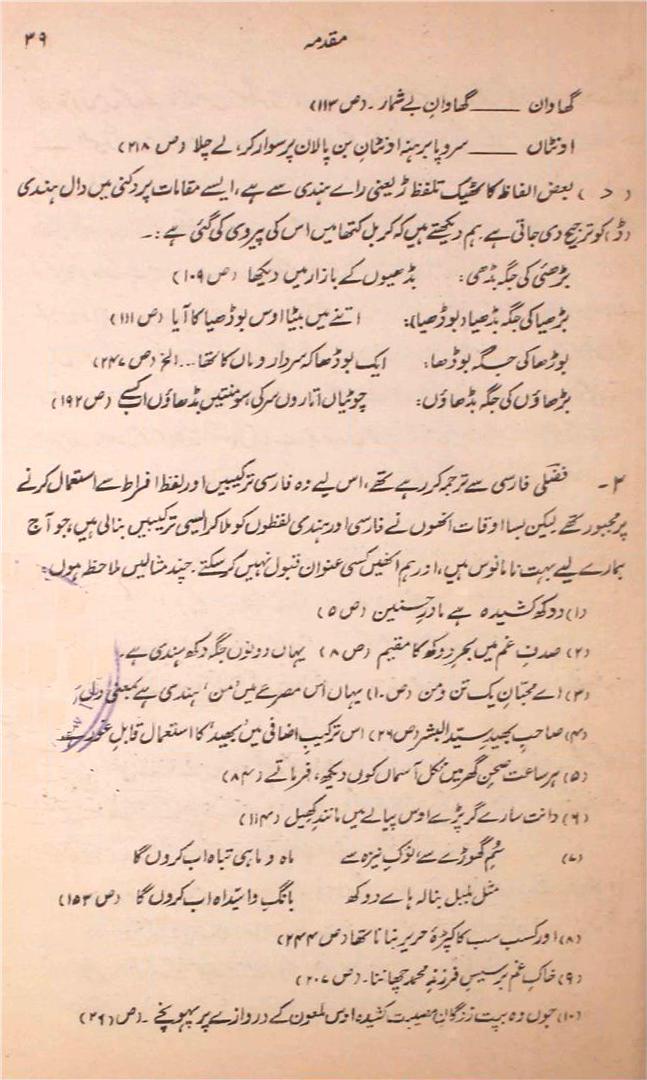 مقدمہ ۳۹
گھاوان ــــــ گھاوانِ بے شمار۔ (ص ۱۱۳)
اونٹاں ــــــ سر و پا برہنہ اونٹانِ بن پالان پر سوار کر، لے چلا (ص ۲۱۸)
(د) بعض الفاظ کا ٹھیک تلفظ ڑ یعنی راے ہندی سے ہے، ایسے مقامات پر دکنی میں دال ہندی
(ڈ) کو ترجیح دی جاتی ہے۔ ہم دیکھتے ہیں کہ کربل کتھا میں اس کی پیروی کی گئی ہے :۔
بڑھئی کی جگہ بڈھی: بڈھیوں کے بازار میں دیکھا (ص ۱۰۹)
بڑھیا کی جگہ بڈھیا (بوڈھیا): اتنے میں بیٹا اوس بوڈھیا کا آیا (ص ۱۱۱)
بوڑھا کی جگہ بوڈھا: ایک بوڈھا کہ سردار وہاں کا تھا... الخ (ص ۲۴۷)
بڑھاؤں کی جگہ بڈھاؤں: چوٹیاں اتاروں سر کی ہور منتیں بڈھاؤں اب کسے (ص ۱۹۲)
۴ - فضلی فارسی سے ترجمہ کر رہے تھے، اس لیے وہ فارسی ترکیبیں اور لفظ افراط سے استعمال کرنے
پر مجبور تھے لیکن بسا اوقات انھوں نے فارسی اور ہندی لفظوں کو ملا کر ایسی ترکیبیں بنالی ہیں، جو آج
ہمارے لیے بہت نامانوس ہیں، اور ہم انھیں کسی عنوان قبول نہیں کر سکتے۔ چند مثالیں ملاحظہ ہوں:
(۱) دوکھ کشیدہ ہے مادرِ حسنین (ص ۵)
(۲) صدفِ غم میں بحرِ دوکھ کا مقیم (ص ۸) یہاں دونوں جگہ دکھ ہندی ہے۔
(۳) اے محبّانِ یک تن و من (ص ۱۰) یہاں اس مصرعے میں ’من‘ ہندی ہے بمعنی دل۔
(۴) صاحبِ بھیدِ سیّد البشر (ص ۲۶) اس ترکیبِ اضافی میں ’بھید‘ کا استعمال قابلِ غور ہے
(۵) ہر ساعت صحنِ گھر میں نکل آسماں کوں دیکھ، فرماتے (۸۴)
(۶) دانت سارے گر پڑے اوس پیالے میں مانندِ کھیل (۱۱۴)
(۷) سُمِ گھوڑے سے نوکِ نیزہ سے ماہ و ماہی تباہ اب کروں گا
مثلِ بلبل بنالہ ہاے دوکھ بانگِ وا سیّداہ اب کروں گا (ص ۱۵۳)
(۸) اور کسب سب کا کپڑۂ حریر بنانا تھا (ص ۲۴۴)
(۹) خاکِ غم بر سیسِ فرزندِ محمد چھاننا۔ (ص ۲۰۷)
(۱۰) جوں وہ بپت زدگانِ مصیبت کشیدہ اوس ملعون کے دروازے پر پہونچے۔ (ص ۲۶۱)